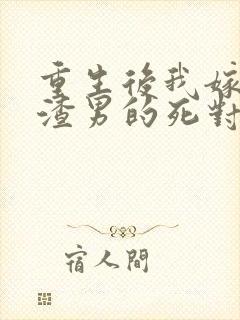 重生後我嫁
渣男的死對
宿人間